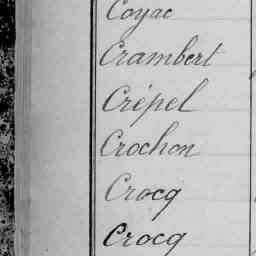 Coyac
Crambert
Crépel
Crochon
Crocq
Crocq